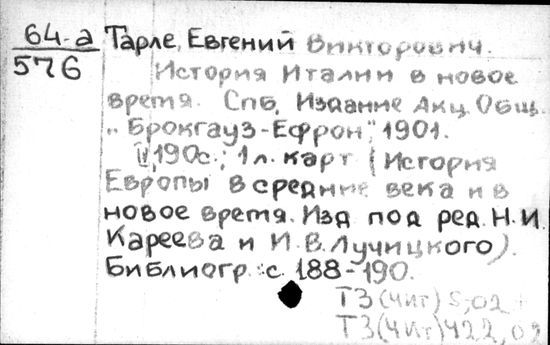 64-а
576
Тарле, Евгений Викторович.
История Италии в новое
время. Спб, Издание Акц. Общ.
„Брокгауз-Ефрон", 1901.
II, 190с.; 1 л. карт (История
Европы в средние века и в
новое время. Изд под ред. Н. И.
Кареева и И. В. Лучицкого).
Библиогр.: с. 188-190.
Т3(4Ит)5,02 +
Т3(4Ит)422,02